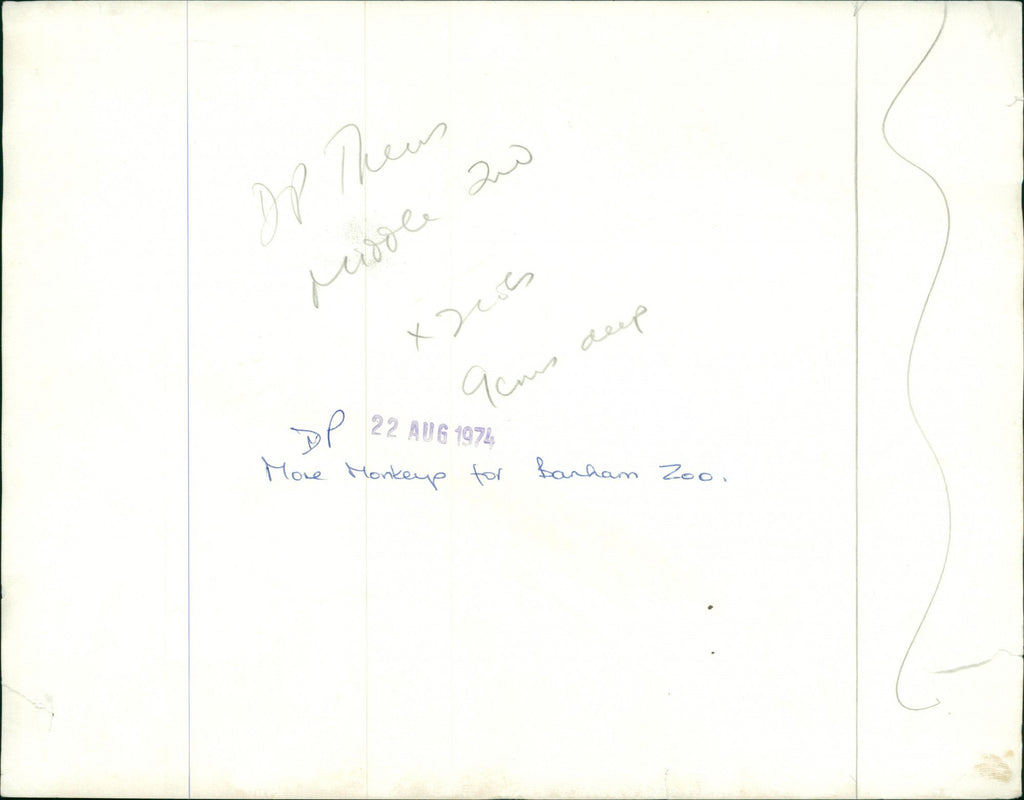 DP Thurs
Middle 2nd
x 2 cols
9cms deep
DP 22 AUG 1974
More Monkeys for Banham Zoo.